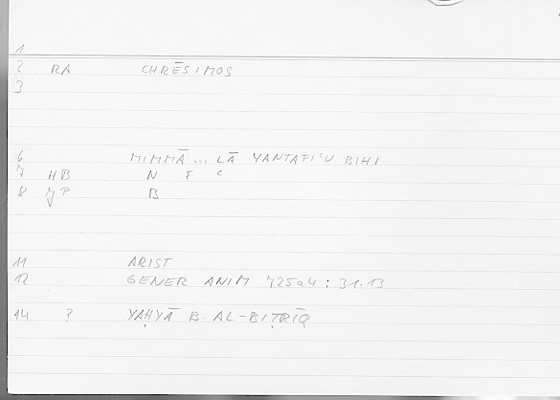 1
2 RA CHRĒSIMOS
3
6 MIMMĀ ... LĀ YANTAFIʿU BIHI
7 HB N F ʿ
8 JP B
11 ARIST
12 GENER ANIM 725a4 : 31.13
14 ? YAḤYĀ B. AL-BIṬRĪQ